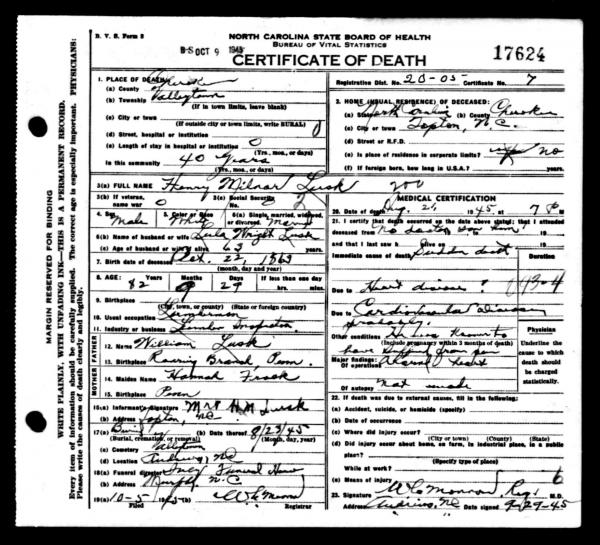 B. V. S. Form 8
NORTH CAROLINA STATE BOARD OF HEALTH
BUREAU OF VITAL STATISTICS
OCT 9 1945
CERTIFICATE OF DEATH
17624
Registration Dist. No. 20-05 Certificate No. 7
1. PLACE OF DEATH
(a) County Cherokee
(b) Township Valleytown
(If in town limits, leave blank)
(c) City or town
(If outside city or town limits, write RURAL)
(d) Street, hospital or institution
(e) Length of stay in hospital or institution 0
(Yrs., mos., or days)
In this community 40 Years
(Yrs., mos., or days)
2. HOME (USUAL RESIDENCE) OF DECEASED:
(a) State North Carolina (b) County Cherokee
(c) City or town Topton, N.C.
(d) Street or R.F.D.
(e) Is place of residence in corporate limits? no
(f) If foreign born, how long in U.S.A.? yrs.
3(a) FULL NAME Henry Milnor Lusk
3(b) If veteran, name war 0
3(c) Social Security No.
4. Sex Male
5. Color or Race White
6(a) Single, married, widowed, or divorced
6(b) Name of husband or wife Lula Wright Lusk
6(c) Age of husband or wife, if alive 63 years
7. Birth date of deceased Oct. 22, 1863
(month, day and year)
8. AGE: Years 82 Months 9 Days 29 If less than one day hrs. min.
9. Birthplace
(City, town, or county) (State or foreign country)
10. Usual occupation Lumberman
11. Industry or business Lumber Inspector
FATHER
12. Name William Lusk
13. Birthplace Roaring Branch, Penn.
MOTHER
14. Maiden Name Hannah
15. Birthplace Penn
16(a) Informant's Signature Mrs H M Lusk
(b) Address Topton, NC
17(a) Burial (b) Date thereof 8/23/45
(Burial, cremation, or removal) (Month, day, year)
(c) Cemetery Valleytown
(d) Location Andrews, NC
18(a) Funeral director Ivey Funeral Home
(b) Address Murphy, N.C.
19(a) 10-5 1945
Filed Registrar
MEDICAL CERTIFICATION
20. Date of death Aug. 21, 1945 at 7 P M
21. I certify that death occurred on the above stated; that I attended
deceased from No doctor saw him, 19
and that I last saw h alive on 19
Immediate cause of death Sudden death
Duration
Due to Heart disease?
Due to Cardiovascular disease
probably.
Other conditions
(Include pregnancy within 3 months of death)
Major findings:
Of operations
Of autopsy Not made
Physician
Underline the cause to which death should be charged statistically
22. If death was due to external causes, fill in the following:
(a) Accident, suicide, or homicide (specify)
(b) Date of occurrence
(c) Where did injury occur?
(City or town) (County) (State)
(d) Did injury occur about home, on farm, in industrial place, in public place?
(Specify type of place)
While at work?
(e) Means of injury
23. Signature M.D.
Address Andrews, NC Date signed 9-29-45
MARGIN RESERVED FOR BINDING
WRITE PLAINLY, WITH UNFADING INK—THIS IS A PERMANENT RECORD.
Every item of information should be carefully supplied. The correct age is especially important. PHYSICIANS:
Write the causes of death clearly and legibly.